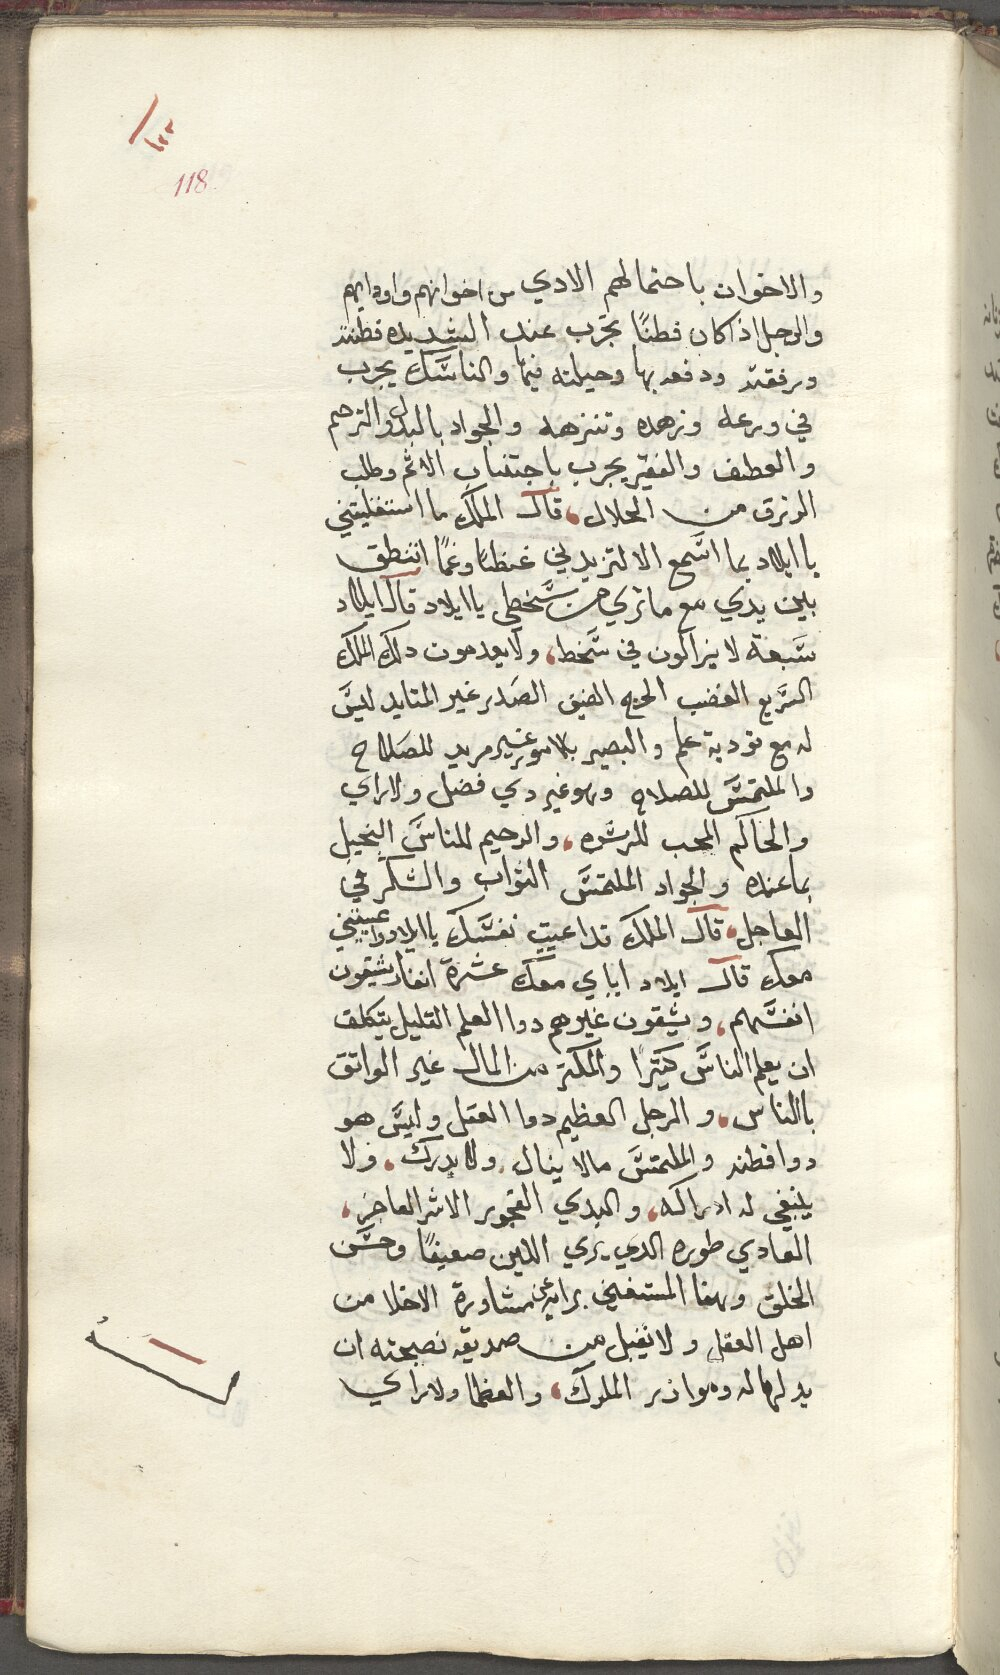 ١٢٢
118
والاخوان باحتمالهم الادي من اخوانهم واودايهم
والرجل اذا كان فطنًا يجرب عند الشديده فطنته
ورفقته ودفعه بها وحيلته فيها والناسك يجرب
في ورعه وزهده وتنزهه والجواد بالبدل والترحم
والعطف والفقير يجرب باجتناب الاثم وطلب
الرزق من الحلال، قال الملك ما استغليتني
يا ايلاد بما اسمع الا لتزيدني غيظًا وغمًا اتنطق
بين يدي مع ما تري من سخطي يا ايلاد قال ايلاد
سبعة لا يزالون في سخط، ولا يعدمون دلك الملك
السريع الغضب الحرج الضيق الصدر غير المتايد ليس
له مع تودية علم والبصير بالامور غير مريد للصلاح
والملتمس للصلاح وهو غير دي فضل ولا راي
والحاكم المحب للرشوه، والرحيم للناس البخيل
بما عنده والجواد الملتمس الثواب والشكر في
العاجل، قال الملك قد اعييت نفسك يا ايلاد واعييتني
معك قال ايلاد اباي معك عشرة انفار يشيقون
انفسهم، ويشقون غيرهم دوا العلم القليل يتكلف
ان يعلم الناس كثيرًا والمكثر من المال غير الواثق
بالناس، والرجل العظيم دوا العقل وليس هو
دوا فطنه والملتمس مالا ينال، ولا يدرك، ولا
ينبغي له ادراكه، والبدي الفجور الاشر الفاخر،
العادي طوره الدي يري اللين ضعيفًا وحسن
الخلق وهنا المستغني برايه عن مشاورة الاخلا من
اهل العقل ولا يقبل من صديقه نصيحته ان
يدلها له وموازر الملوك، والعظما ولا راي